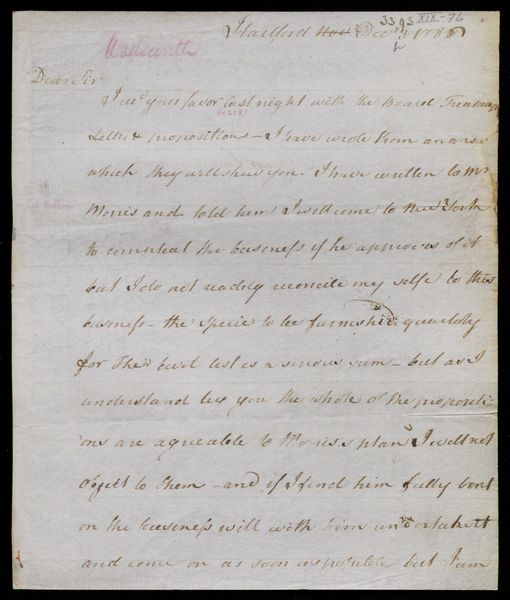 3393 XIX-76
Hartford Decr 3 178
Wadsworth
Dear Sir
I recd your favor last night with the Board Treasury
Letter & propositions - I have wrote them an answer
which they will shew you. I have written to Mr
Morris and told him I will come to New York
to compleat the business if he approves of it
but I do not readily reconcile my selfe to this
business - the specie to be furnishd quarterly
for the civil list is a serious sum - but as I
understand by you the whole of the propositi-
ons are agreable to Morris,s plan I will not
object to them - and if I find him fully bent
on the business will with him undertake it
and come on as soon as possible but I am